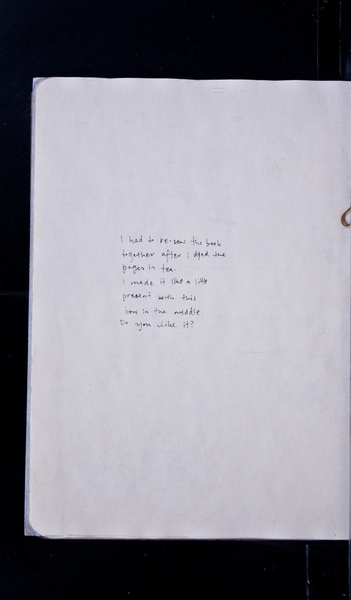 I had to re-sew the book
together after I dyed the
pages in tea.
I made it like a little
present with this
bow in the middle.
Do you like it?